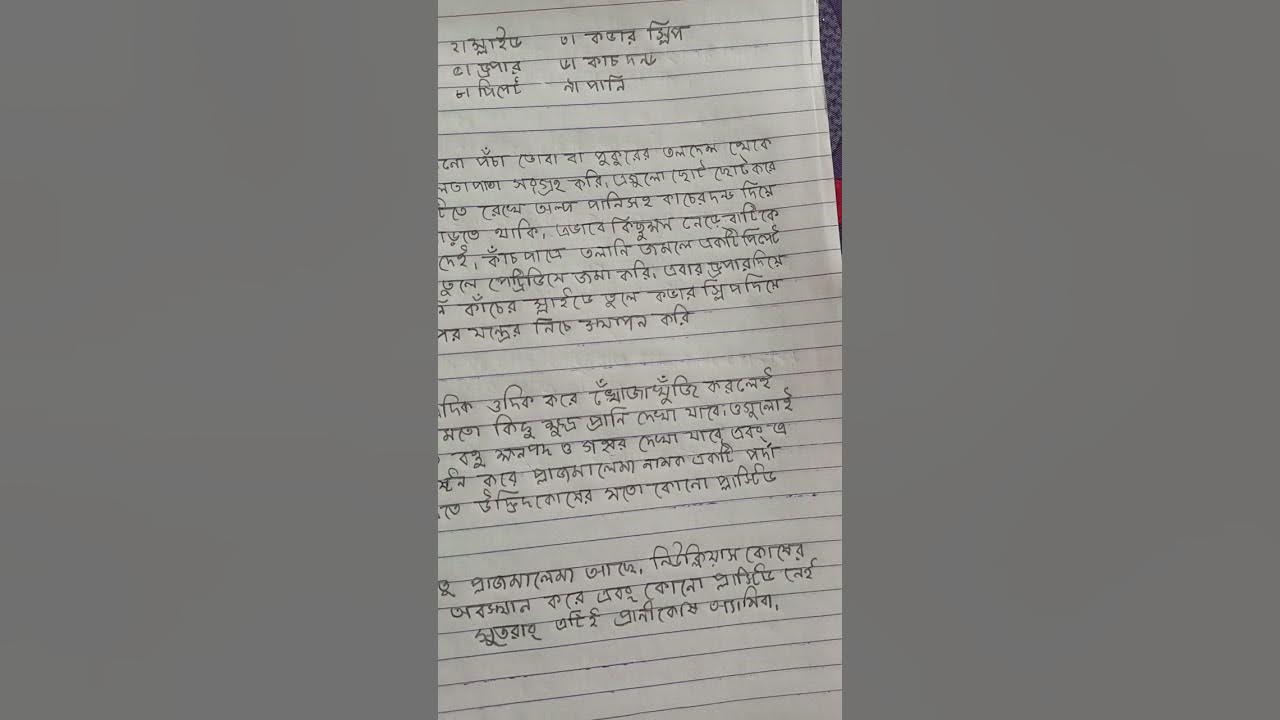 ২। স্লাইড ৩। কভার স্লিপ
৫। ড্রপার ৬। কাচ দন্ড
৮। পিপেট ৯। পানি
নো পঁচা ডোবা বা পুকুরের তলদেশ থেকে
লতাপাতা সংগ্রহ করি, এগুলো ছোট ছোট করে
টিতে রেখে অল্প পানিসহ কাচের দন্ড দিয়ে
ড়তে থাকি, এভাবে কিছুক্ষন নেড়ে বাটিকে
দেই, কাঁচপাত্রে তলানি জমলে একটি পিপেট
তুলে পেট্রিডিসে জমা করি, এবার ড্রপার দিয়ে
কাঁচের স্লাইডে তুলে কভার স্লিপ দিয়ে
পর যন্ত্রের নিচে স্থাপন করি
দিক ওদিক করে খোঁজাখুঁজি করলেই
মতো কিছু ক্ষুদ্র প্রানি দেখা যাবে, ওগুলোই
বহু ক্ষনপদ ও গহ্বর দেখা যাবে এবং এ
ষ্টন করে প্লাজমালেমা নামক একটি পর্দা
তে উদ্ভিদকোষের মতো কোনো প্লাস্টিড
প্লাজমালেমা আছে, নিউক্লিয়াস কোষের
অবস্থান করে এবং কোনো প্লাস্টিড নেই
সুতরাং এটিই প্রানীকোষ অ্যামিবা,